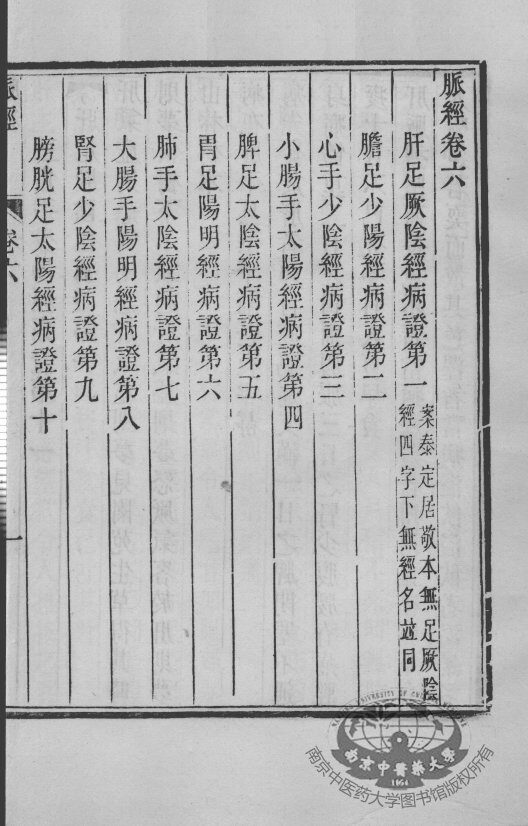 脈經卷六
肝足厥陰經病證第一
案泰定居敬本無足厥陰
經四字下無經名竝同
膽足少陽經病證第二
心手少陰經病證第三
小腸手太陽經病證第四
脾足太陰經病證第五
胃足陽明經病證第六
肺手太陰經病證第七
大腸手陽明經病證第八
腎足少陰經病證第九
膀胱足太陽經病證第十
脈經
卷六
一
南京中醫藥大學
1954
南京中医药大学图书馆版权所有